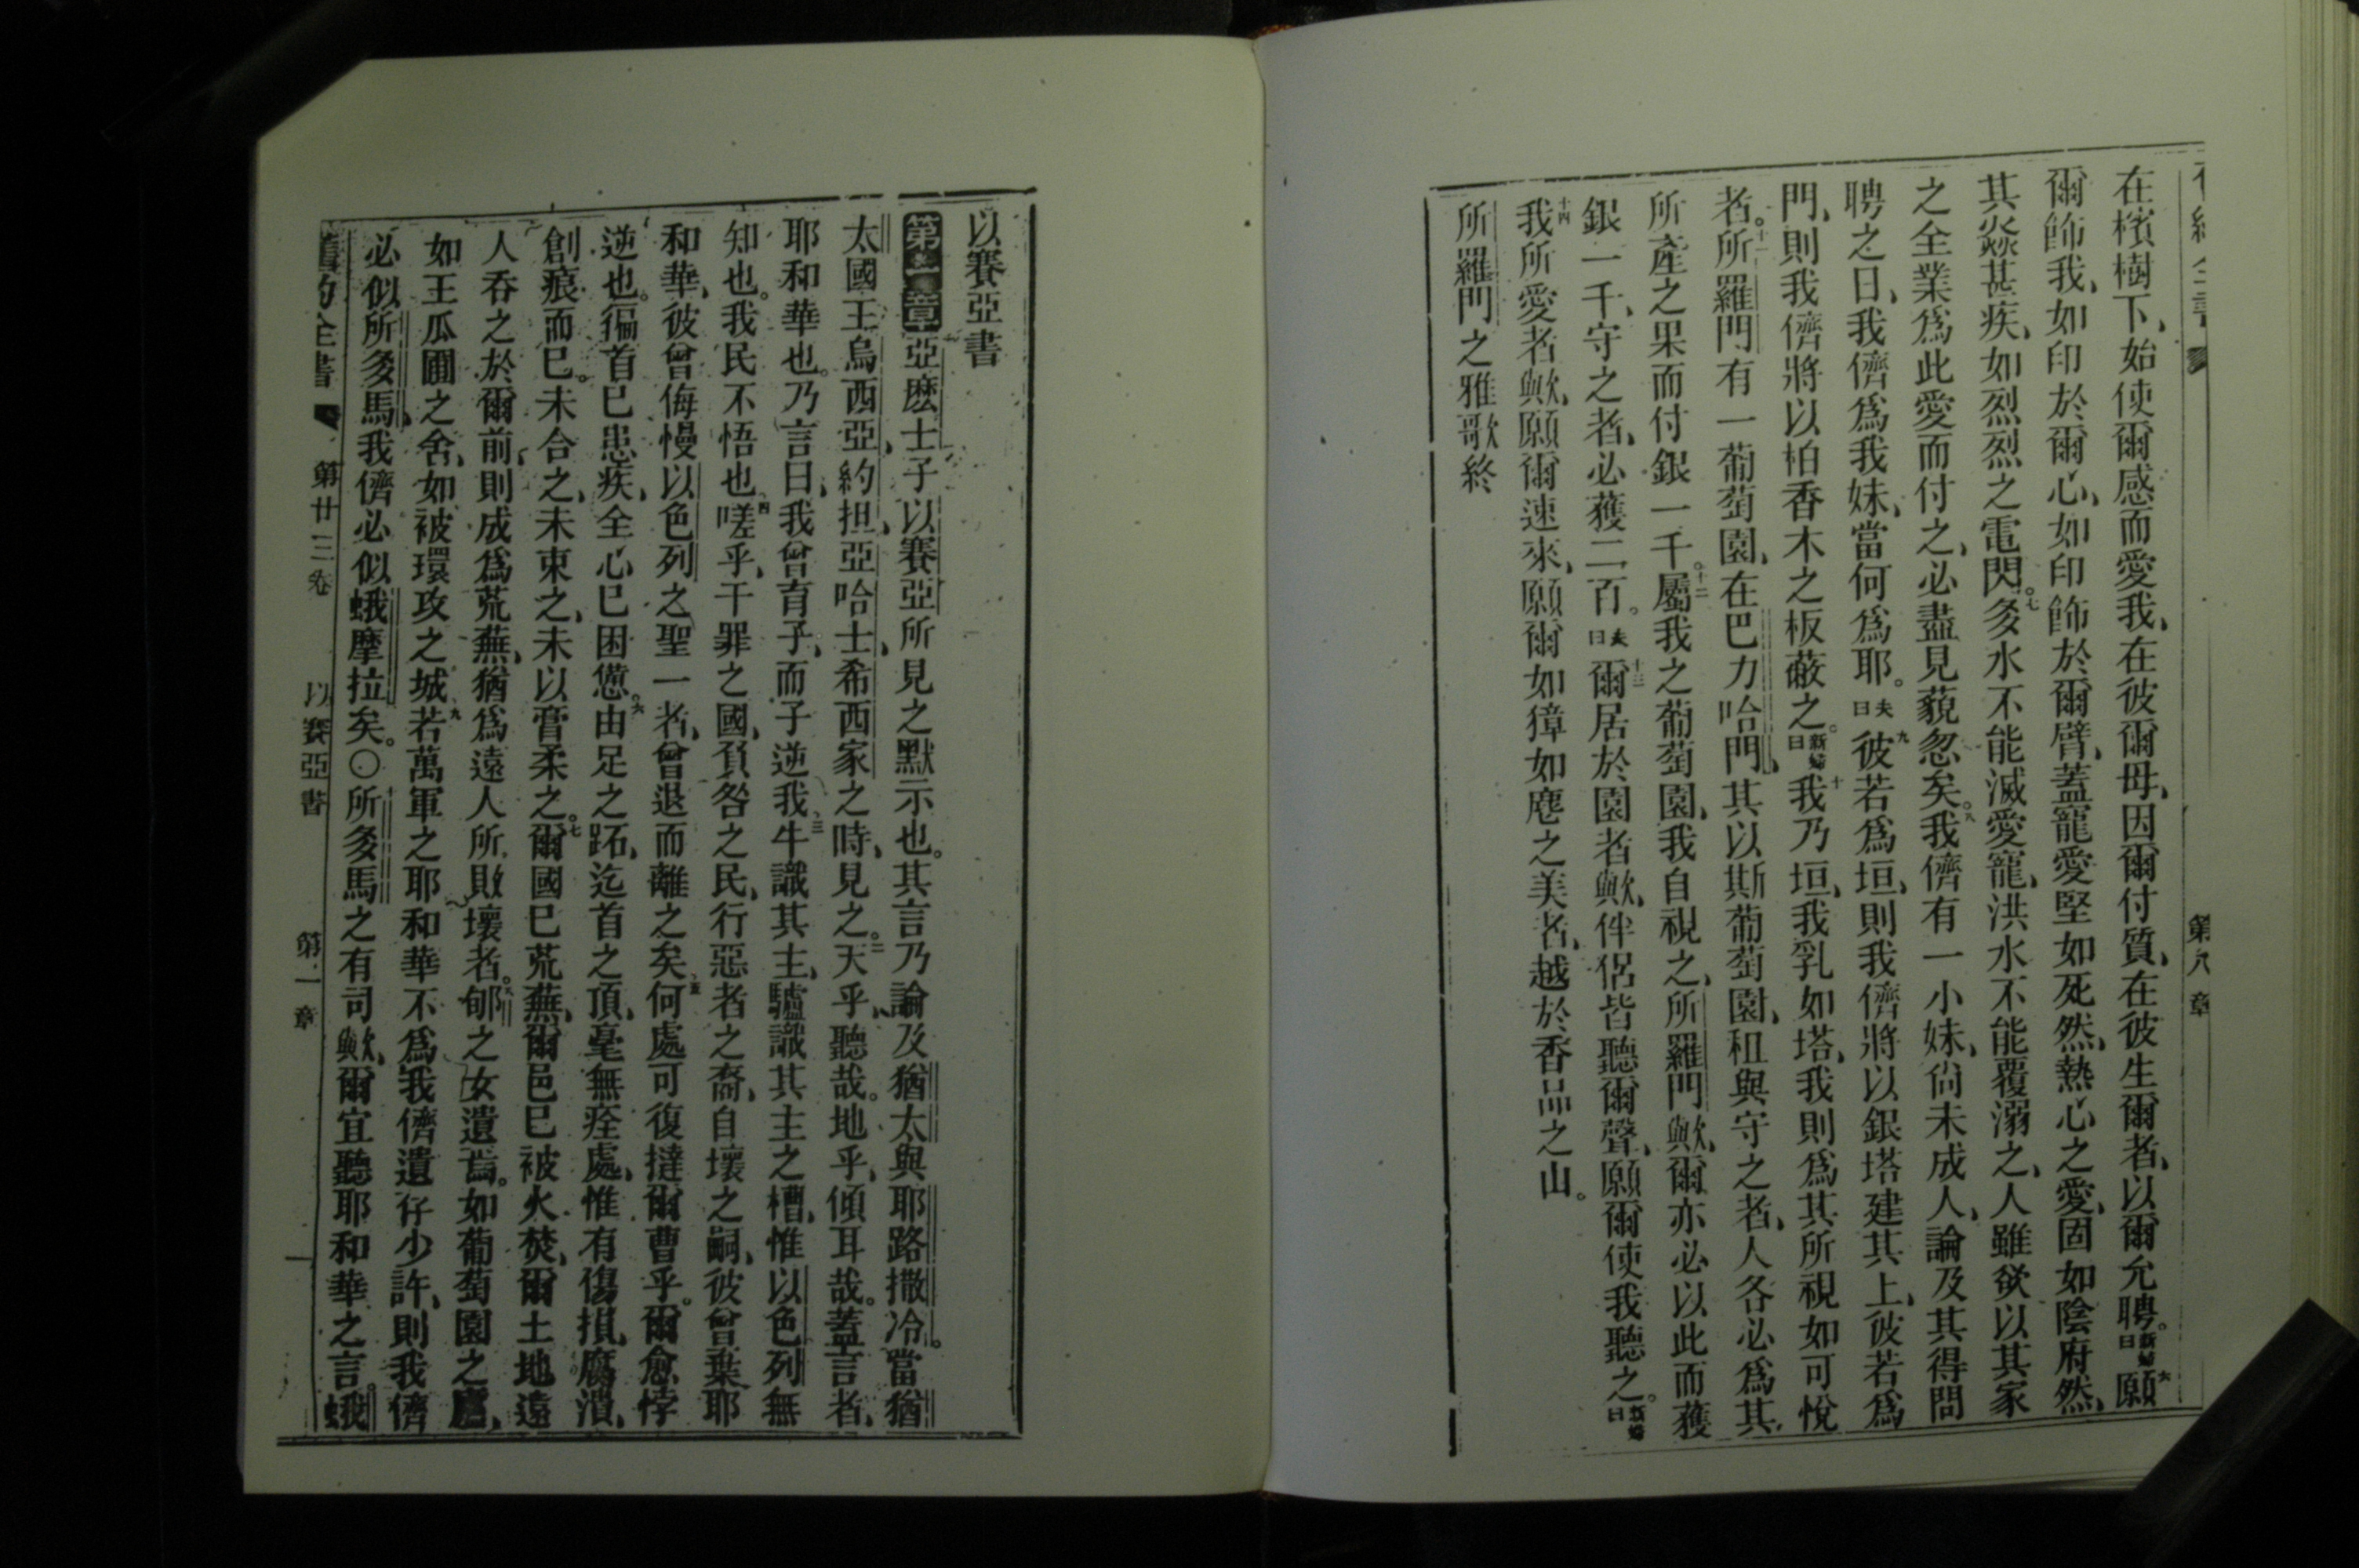 第八章
在檳樹下、始使爾感而愛我、在彼爾母、因爾付質、在彼生爾者、以爾允聘。新婦曰六願
爾飾我、如印於爾心、如印飾於爾臂、蓋寵愛堅如死然、熱心之愛、固如陰府然、
其焱甚疾、如烈烈之電閃。七多水不能滅愛寵、洪水不能覆溺之、人雖欲以其家
之全業爲此愛而付之、必盡見藐忽矣。八我儕有一小妹、尙未成人、論及其得問
聘之日、我儕爲我妹、當何爲耶。夫曰九彼若爲垣、則我儕將以銀塔建其上、彼若爲
門、則我儕將以柏香木之板蔽之。新婦曰十我乃垣、我乳如塔、我則爲其所視如可悅
者。十一所羅門有一葡萄園、在巴力哈門、其以斯葡萄園、租與守之者、人各必爲其
所產之果而付銀一千。十二屬我之葡萄園、我自視之、所羅門歟、爾亦必以此而獲
銀一千、守之者、必獲二百。夫曰十三爾居於園者歟、伴侶皆聽爾聲、願爾使我聽之。新婦曰
十四我所愛者歟、願爾速來、願爾如獐如麀之美者、越於香品之山。
所羅門之雅歌終
以賽亞書
第一章亞麽士子以賽亞所見之默示也。其言乃論及猶太與耶路撒冷。當猶
太國王烏西亞、約担、亞哈士、希西家之時、見之。二天乎、聽哉。地乎、傾耳哉。蓋言者、
耶和華也。乃言曰、我曾育子、而子逆我、三牛識其主、驢識其主之槽、惟以色列無
知也。我民不悟也、四嗟乎、干罪之國、負咎之民、行惡者之裔、自壞之嗣、彼曾棄耶
和華、彼曾侮慢以色列之聖一者、曾退而離之矣、五何處可復撻爾曹乎。爾愈悖
逆也。徧首已患疾、全心已困憊。六由足之跖、迄首之頂、毫無痊處、惟有傷損、腐潰、
創痕而已。未合之、未束之、未以膏柔之。七爾國已荒蕪、爾邑已被火焚、爾土地遠
人吞之於爾前、則成爲荒蕪、猶爲遠人所敗壞者。八郇之女遺焉。如葡萄園之廬、
如王瓜圃之舍、如被環攻之城、九若萬軍之耶和華不爲我儕遺存少許、則我儕
必似所多馬、我儕必似蛾摩拉矣。〇十所多馬之有司歟、爾宜聽耶和華之言。蛾
舊約全書 第廿三卷 以賽亞書 第一章 一